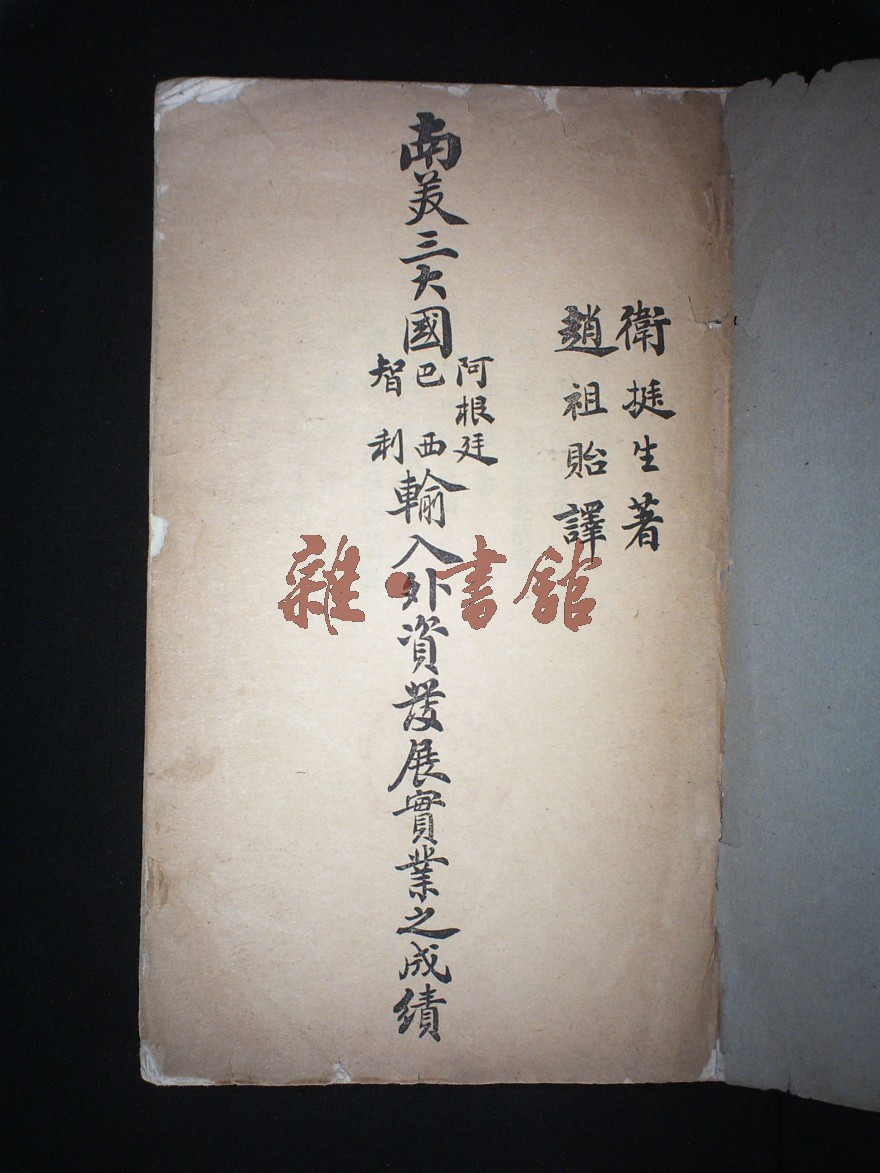 衛挺生著
趙祖貽譯
南美三大國阿根廷巴西智利輸入外資發展實業之成績
雜·書館